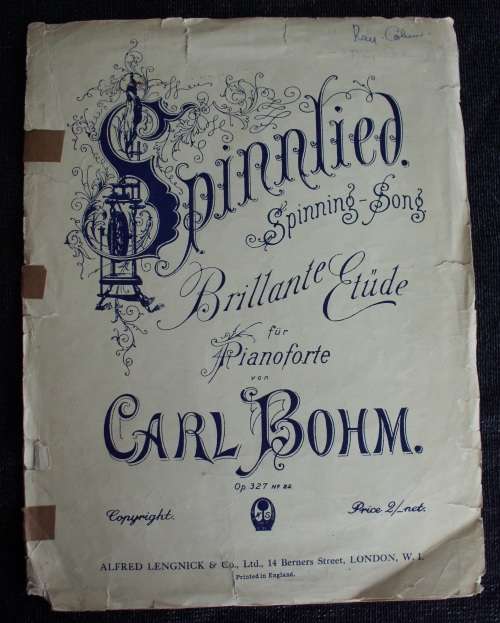 Spinnlied.
Spinning-Song
Brillante Etüde
für
Pianoforte
von
CARL BOHM.
Op. 327 No 22
Copyright.
Price 2/_net.
ALFRED LENGNICK & Co., Ltd., 14 Berners Street, LONDON, W. 1.
Printed in England.